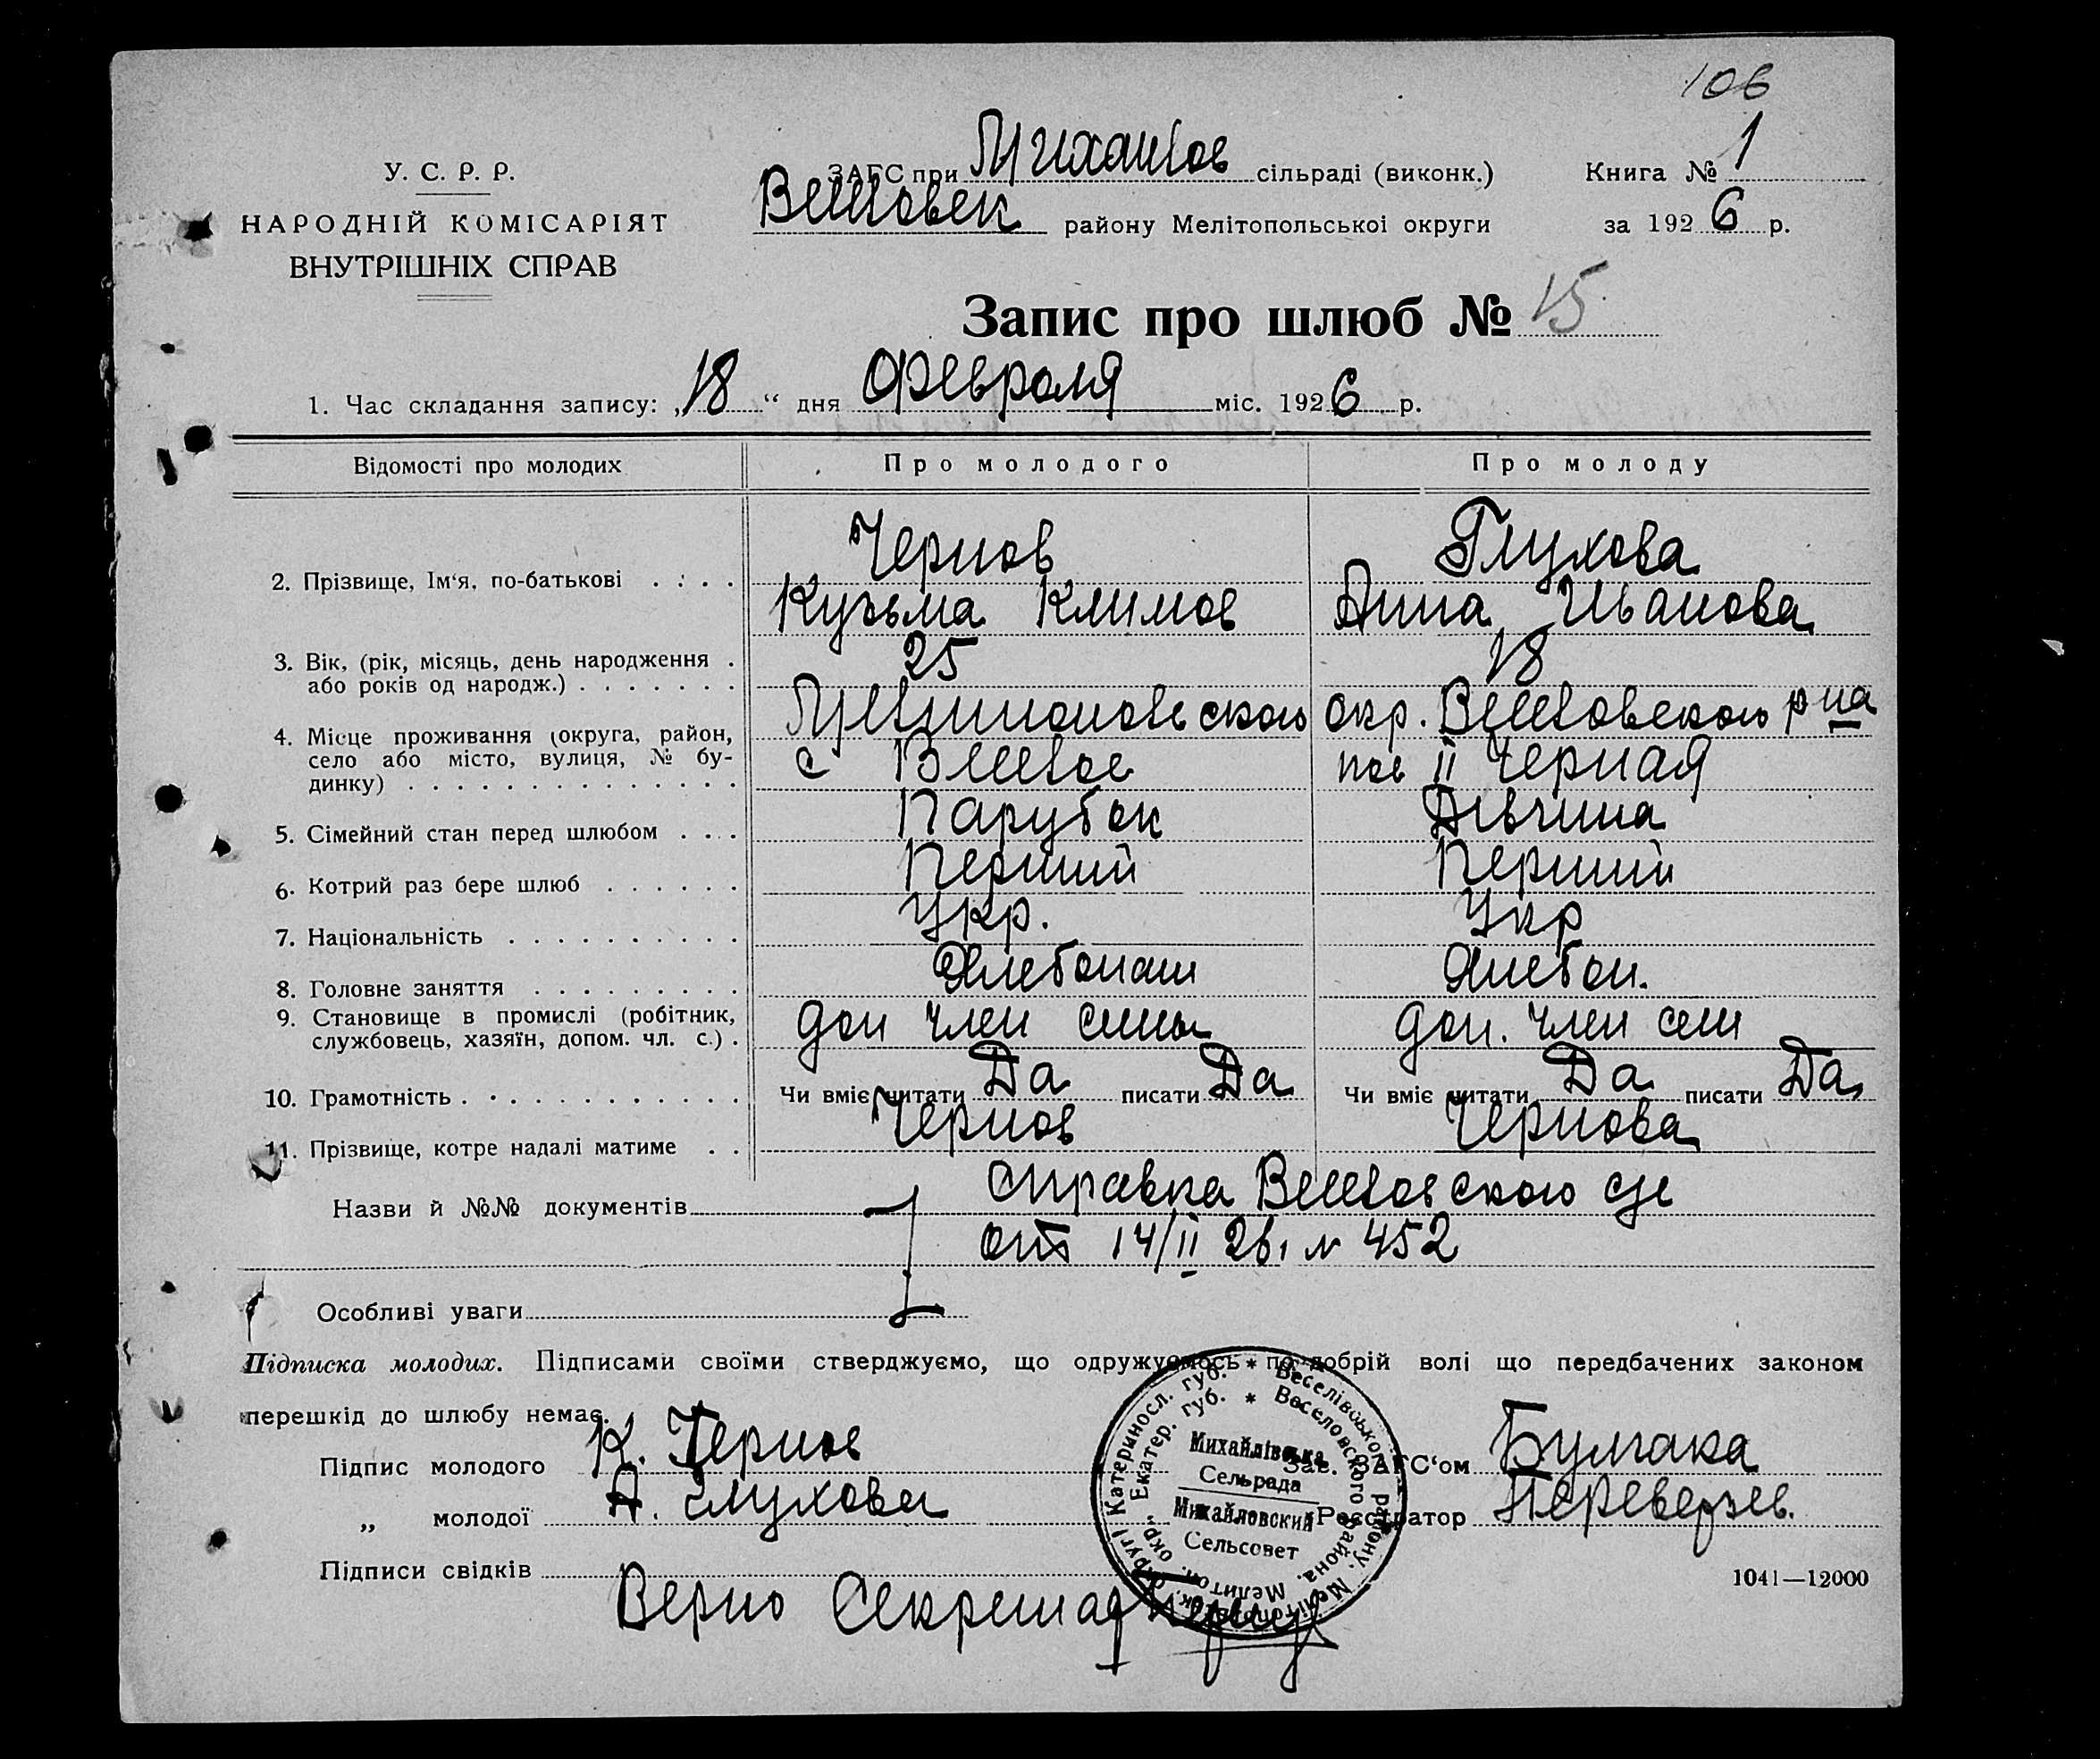 106
У. С. Р. Р.
НАРОДНІЙ КОМІСАРІЯТ
ВНУТРІШНІХ СПРАВ
ЗАГС при Михайлов сільраді (виконк.)
Веселовск району Мелітопольськоі округи
Книга № 1
за 1926 р.
Запис про шлюб № 15
1. Час складання запису: „18“ дня Февраля міс. 1926 р.
Відомості про молодих
Про молодого
Про молоду
2. Прізвище, Ім‘я, по-батькові . . . .
Чернов
Кузьма Климов
Глухова
Анна Иванова
3. Вік, (рік, місяць, день народження .
або років од народж.) . . . . . . .
25
18
4. Місце проживання (округа, район,
село або місто, вулиця, № бу-
динку) . . . . . . . . . . . . . .
окр. Веселовского р на
с Веселое
пос II Черная
5. Сімейний стан перед шлюбом . . .
Парубок
Дівчина
6. Котрий раз бере шлюб . . . . . .
Перший
Перший
7. Національність . . . . . . . . . .
Укр.
Укр
8. Головне заняття . . . . . . . . .
Хлебопаш
Хлебоп.
9. Становище в промислі (робітник,
службовець, хазяїн, допом. чл. с.) .
доп член семьи
доп. член сем
10. Грамотність . . . . . . . . . . . .
Чи вміє читати Да писати Да
Чи вміє читати Да писати Да
11. Прізвище, котре надалі матиме . .
Чернов
Чернова
Назви й №№ документів
справка Веселовского
от 14/II 26 № 452
Особливі уваги
Підписка молодих. Підписами своїми стверджуємо, що одружуємось по добрій волі що передбачених законом
перешкід до шлюбу немає.
Підпис молодого К. Чернов
„ молодої А. Глухова
Підписи свідків
Зав. ЗАГС‘ом Булгака
Реєстратор Переверзев.
Катериносл. губ. * Веселівського району. Мелітопольск. округи
Екатер. губ. * Веселовского района. Мелитоп. окр.
Михайлівська
Сельрада
Михайловский
Сельсовет
1041—12000
Верно Секретар